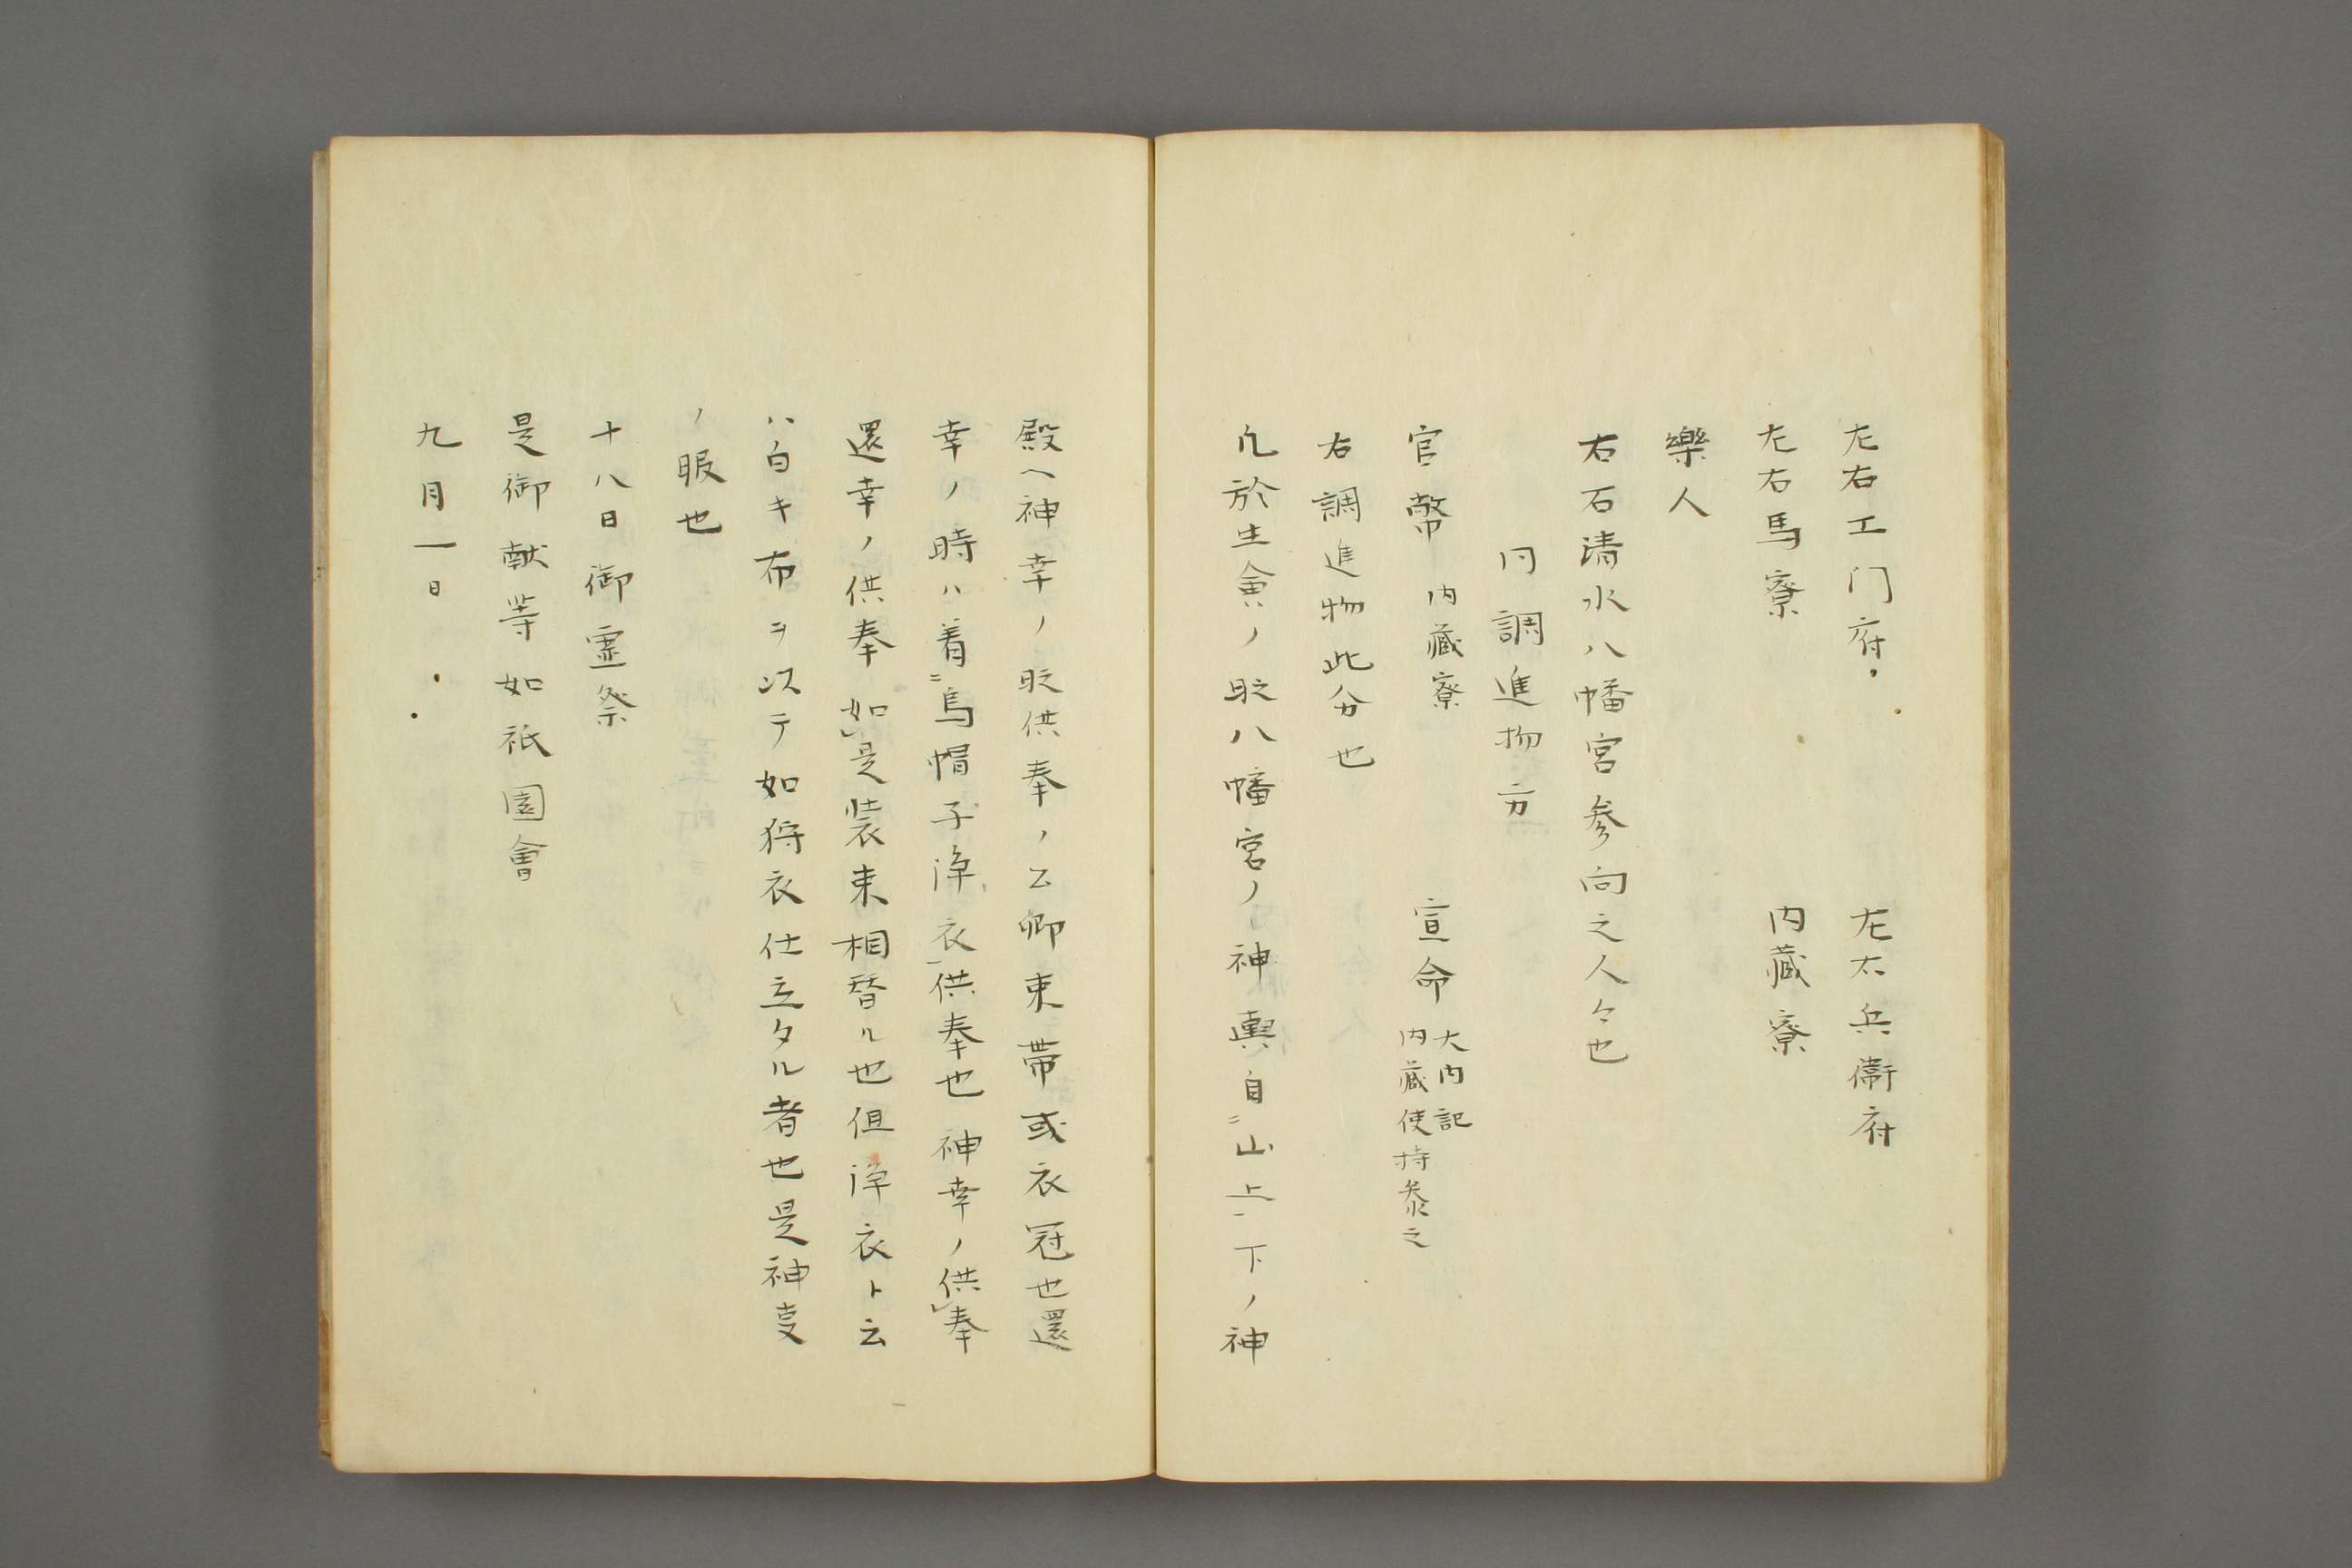 左右エ门府　左右兵衛府
左右馬寮　内藏寮
樂人
右石清水八幡宮参向之人々也
同調進物方
官幣　内藏寮　宣命　大内記
内藏使持参之
右調進物此分也
凡放生會ノ時八幡宮ノ神輿自ニ山上一下ノ神
殿ヘ神幸ノ時供奉ノ公卿束帶或衣冠也還
幸ノ時ハ着ニ烏帽子浄衣一供奉也神幸ノ供レ奉
還幸ノ供奉如レ是装束相替ル也但浄衣ト云
ハ白キ布ヲ以テ如狩衣仕立タル者也是神事
ノ服也
十八日御霊祭
是御献等如祇園會
九月一日